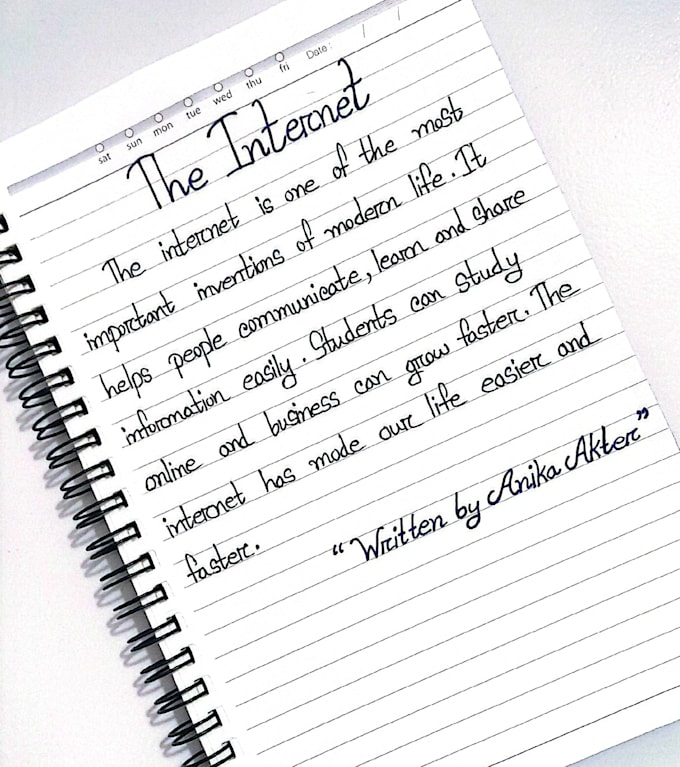 sat sun mon tue wed thu fri Date: / /
The Internet
The internet is one of the most
important inventions of modern life. It
helps people communicate, learn and share
information easily. Students can study
online and business can grow faster. The
internet has made our life easier and
faster.
“Written by Anika Akter”